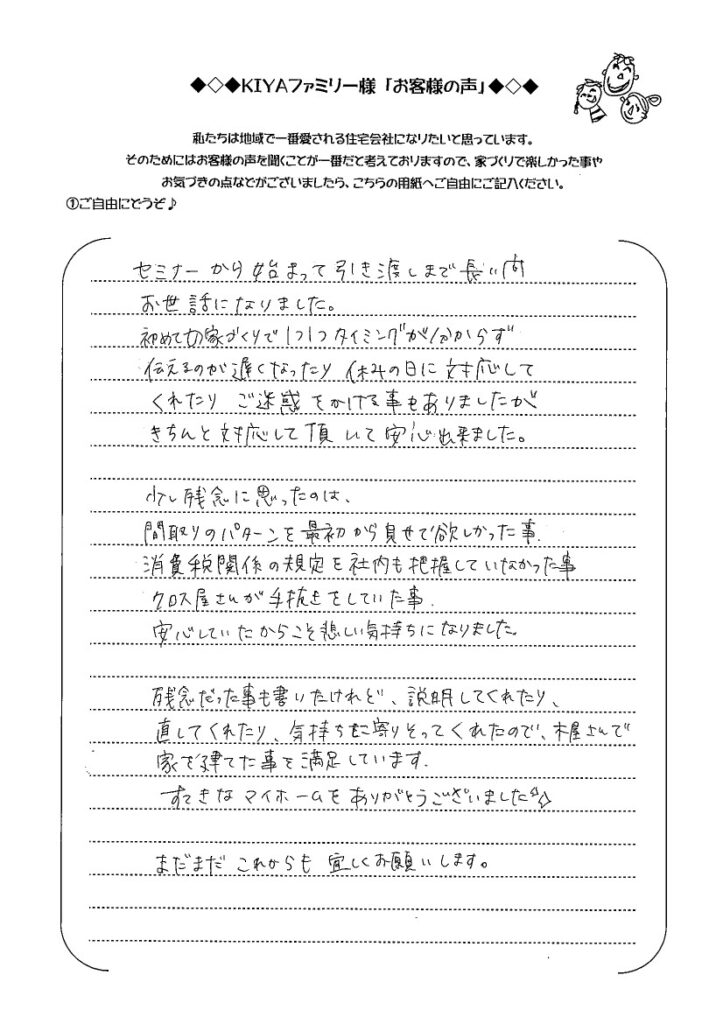 ◆◇◆KIYAファミリー様「お客様の声」◆◇◆
私たちは地域で一番愛される住宅会社になりたいと思っています。
そのためにはお客様の声を聞くことが一番だと考えておりますので、家づくりで楽しかった事や
お気づきの点などがございましたら、こちらの用紙へご自由にご記入ください。
①ご自由にどうぞ♪
セミナーから始まって引き渡しまで長い間
お世話になりました。
初めての家づくりで1つ1つタイミングが分からず
伝えるのが遅くなったり 休みの日に対応して
くれたり ご迷惑をかける事もありましたが
きちんと対応して頂いて安心出来ました。
少し残念に思ったのは、
間取りのパターンを最初から見せて欲しかった事.
消費税関係の規定を社内も把握していなかった事
クロス屋さんが手抜きをしていた事.
安心していたからこそ悲しい気持ちになりました.
残念だった事も書いたけれど、説明してくれたり、
直してくれたり、気持ちに寄りそってくれたので、木屋さんで
家を建てた事を満足しています.
すてきなマイホームをありがとうございました☆☆
まだまだ これからも 宜しくお願いします。